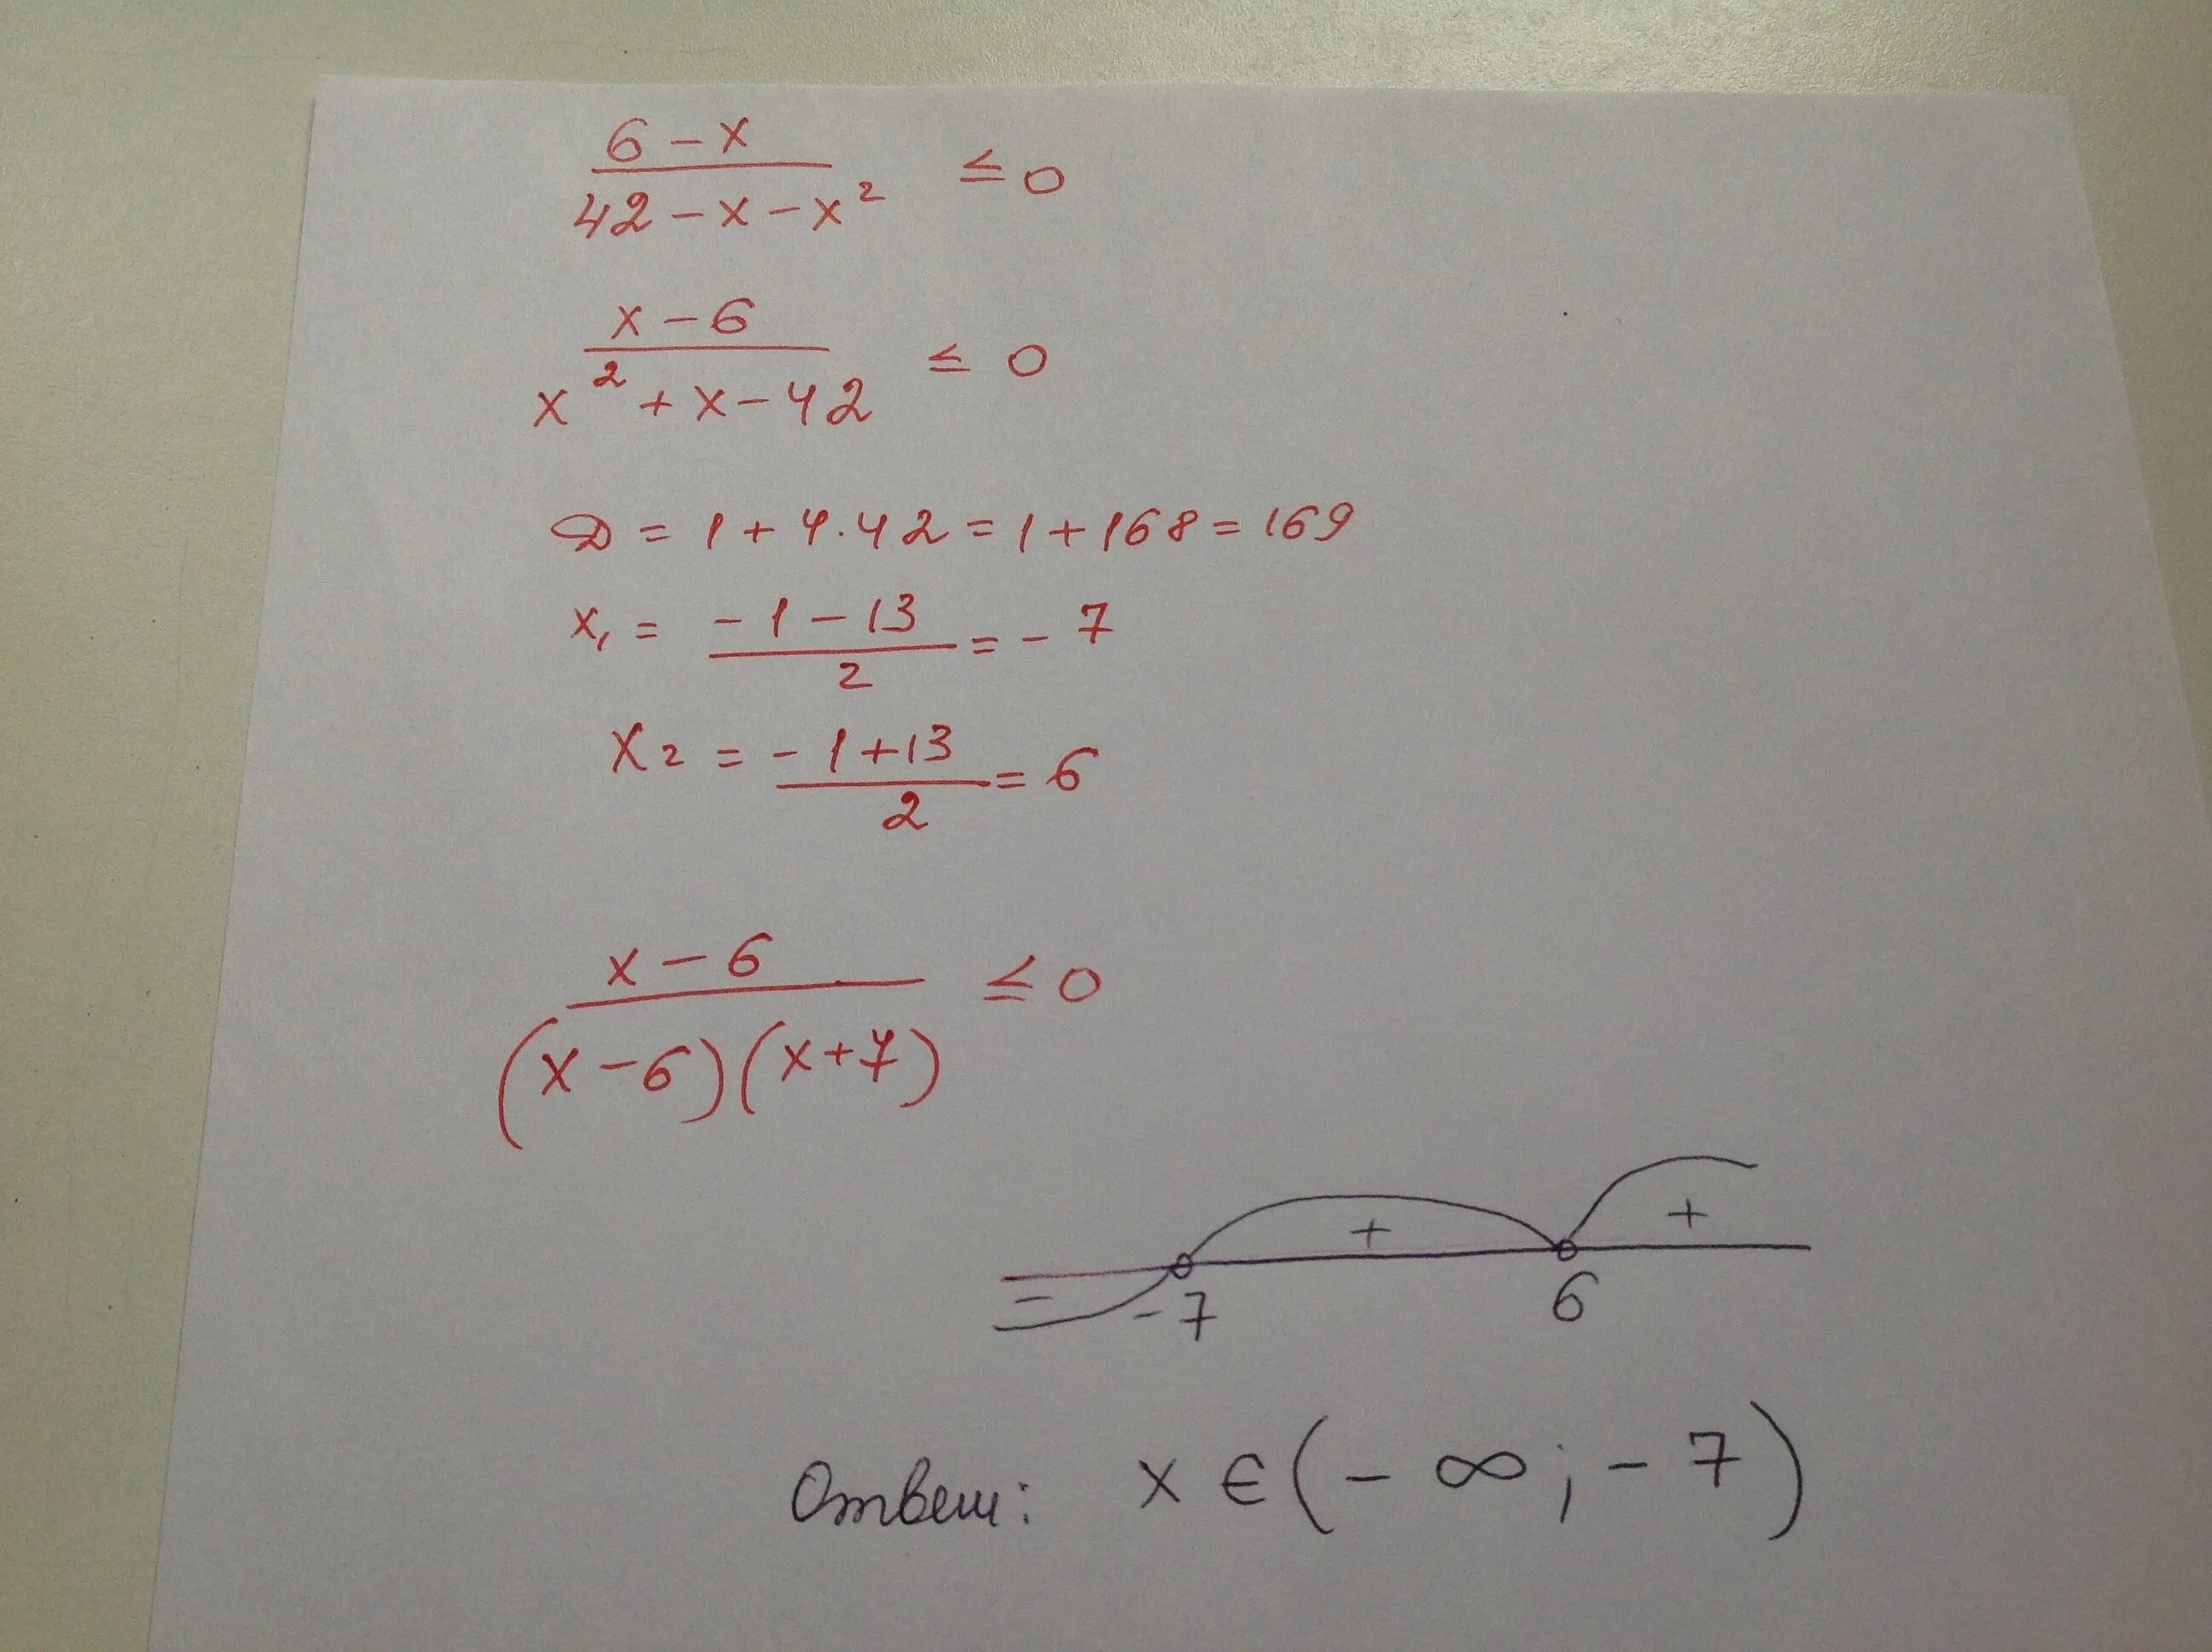 6 - x
42 - x - x² ≤ 0
x - 6
x² + x - 42 ≤ 0
D = 1 + 4·42 = 1 + 168 = 169
x₁ = (-1 - 13)/2 = -7
x₂ = (-1 + 13)/2 = 6
x - 6
(x - 6)(x + 7) ≤ 0
+ +
- -7 6
Ответ: x ∈ (-∞; -7)